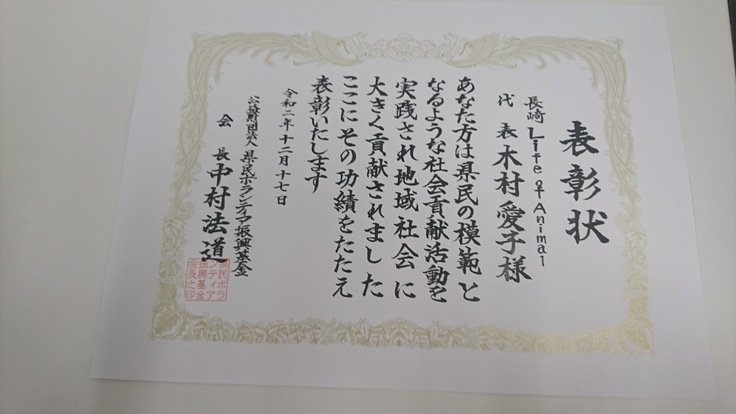 表彰状
長崎 Life of Animal
代表 木村愛子様
あなた方は県民の模範と
なるような社会貢献活動を
実践され地域社会に
大きく貢献されました
ここにその功績をたたえ
表彰いたします
令和二年十二月十七日
公益財団法人 県民ボランティア振興基金
会長 中村法道
県民ボラ
ンティア
振興基金
会長之印